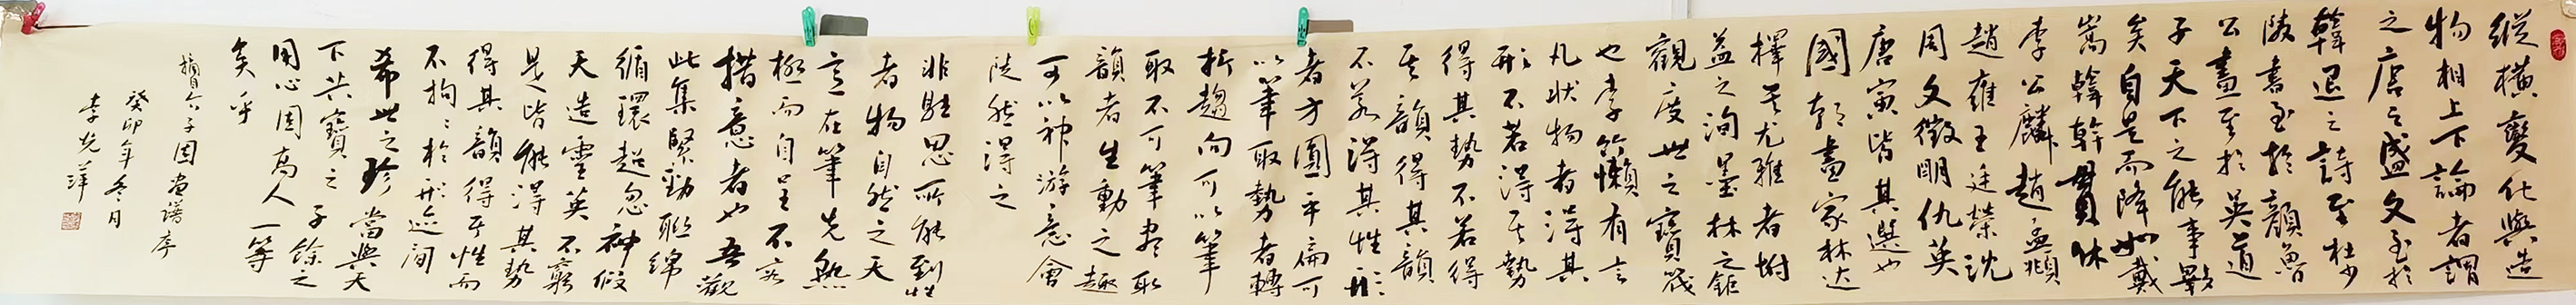 縱橫變化與造
物相上下論者謂
之唐之盛文至於
韓退之詩至杜少
陵書至於顏魯
公畫至於吳道
子天下之能事畢
矣自是而降如戴
嵩韓幹貫休
李公麟趙孟頫
趙雍王廷榮沈
周文徵明仇英
唐寅皆其選也
國朝畫家林达
擇其尤雅者拊
益之洵墨林之鉅
觀度世之寶筏
也李竹懶有言
凡狀物者得其
形不若得其勢
得其勢不若得
其韻得其韻
不若得其性形
者方圓平扁可
以筆取勢者轉
折趨向可以筆
取不可筆盡取
韻者生動之趣
可以神游意會
陡然得之
非駐思所能到性
者物自然之天
言在筆先熟
極而自呈不容
措意者也吾觀
此集緊勁聯綿
循環超忽神假
天造靈英不窮
是皆能得其勢
得其韻得其性而
不拘〻於形迹間
希世之珍當與天
下共寶之子餘之
用心固高人一等
矣乎
摘自六子图画谱序
癸卯年冬月
李光萍